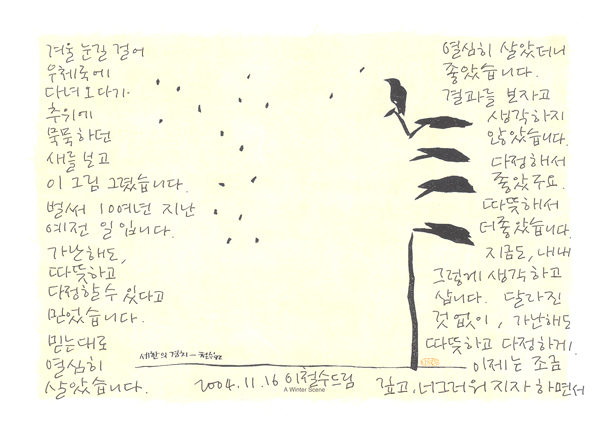 겨울 눈길 걸어
우체국에
다녀오다가
추위에
묵묵하던
새를 보고
이 그림 그렸습니다.
벌써 10여년 지난
예전 일입니다.
가난해도,
따뜻하고
다정할 수 있다고
믿었습니다.
믿는대로
열심히
살았습니다.
열심히 살았더니
좋았습니다.
결과를 보자고
생각하지
않았습니다.
다정해서
좋았구요.
따뜻해서
더 좋았습니다.
지금도, 내내
그렇게 생각하고
삽니다. 달라진
것 없이, 가난해도
따뜻하고 다정하게.
이제는 조금
깊고, 너그러워 지자 하면서
세한의 경치 — 철수 92
2004.11.16 이철수드림
A Winter Scene